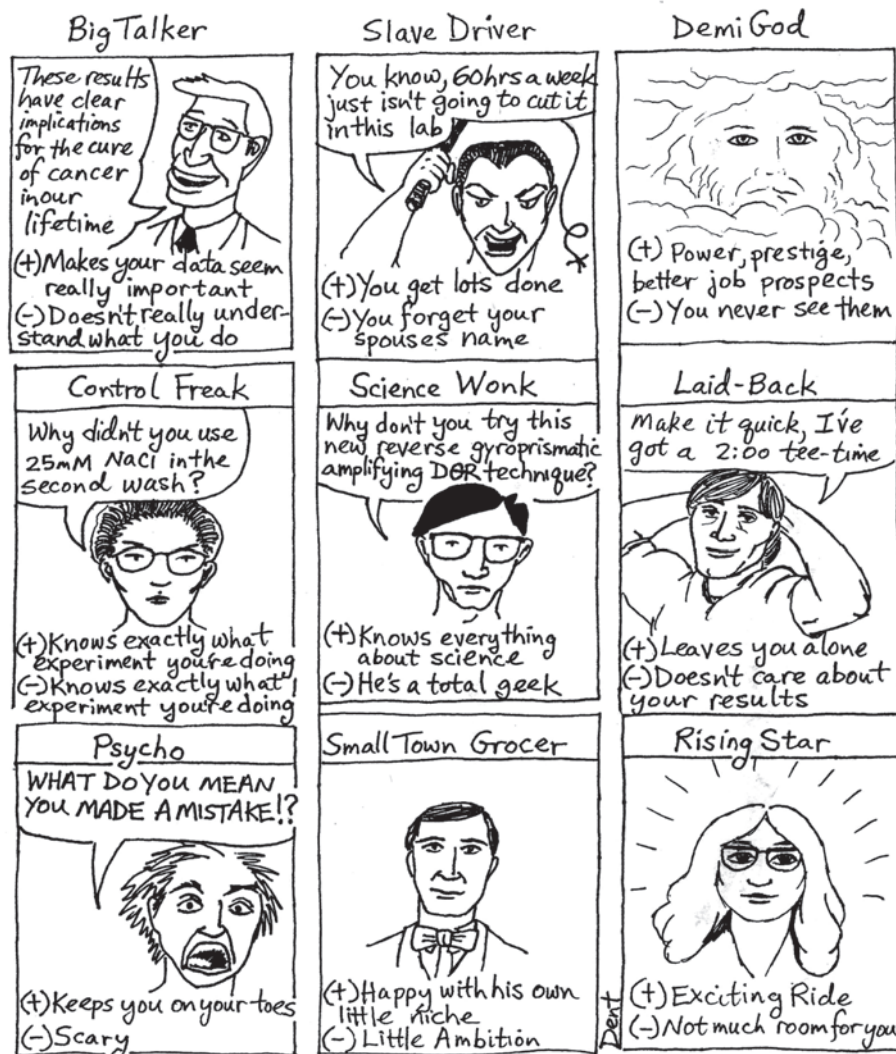 Big Talker
These results
have clear
implications
for the cure
of cancer
in our
lifetime
(+) Makes your data seem
really important
(-) Doesn't really under-
stand what you do
Slave Driver
You know, 60hrs a week
just isn't going to cut it
in this lab
(+) You get lots done
(-) You forget your
spouses name
Demi God
(+) Power, prestige,
better job prospects
(-) You never see them
Control Freak
Why didn't you use
25mM NaCl in the
second wash?
(+) Knows exactly what
experiment you're doing
(-) Knows exactly what
experiment you're doing
Science Wonk
Why don't you try this
new reverse gyroprismatic
amplifying DOR technique?
(+) Knows everything
about science
(-) He's a total geek
Laid-Back
Make it quick, I've
got a 2:00 tee-time
(+) Leaves you alone
(-) Doesn't care about
your results
Psycho
WHAT DO YOU MEAN
YOU MADE A MISTAKE!?
(+) Keeps you on your toes
(-) Scary
Small Town Grocer
(+) Happy with his own
little niche
(-) Little Ambition
Rising Star
(+) Exciting Ride
(-) Not much room for you
Dent